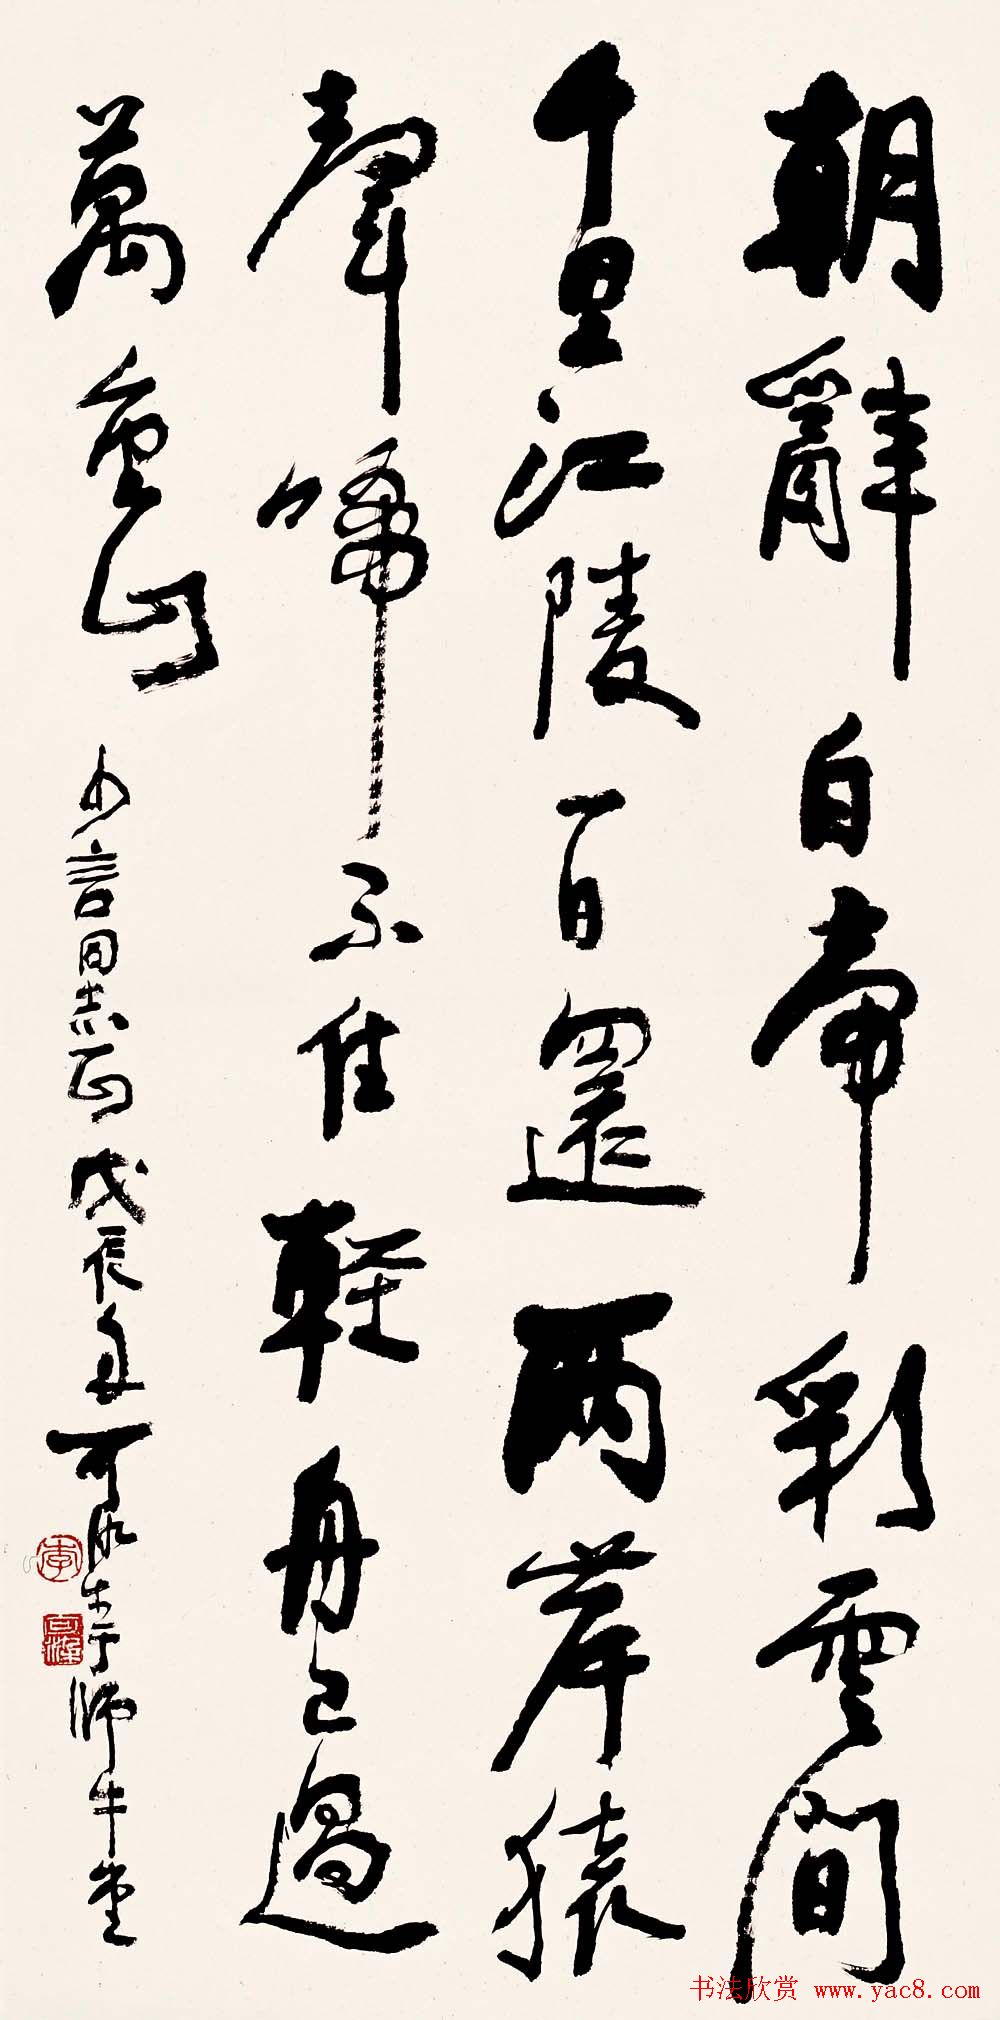 朝辭白帝彩雲間
千里江陵一日還兩岸猿
聲啼不住輕舟已過
萬重山 少言同志正 戊辰 可染于師牛堂
李
可染
书法欣赏 www.yac8.com